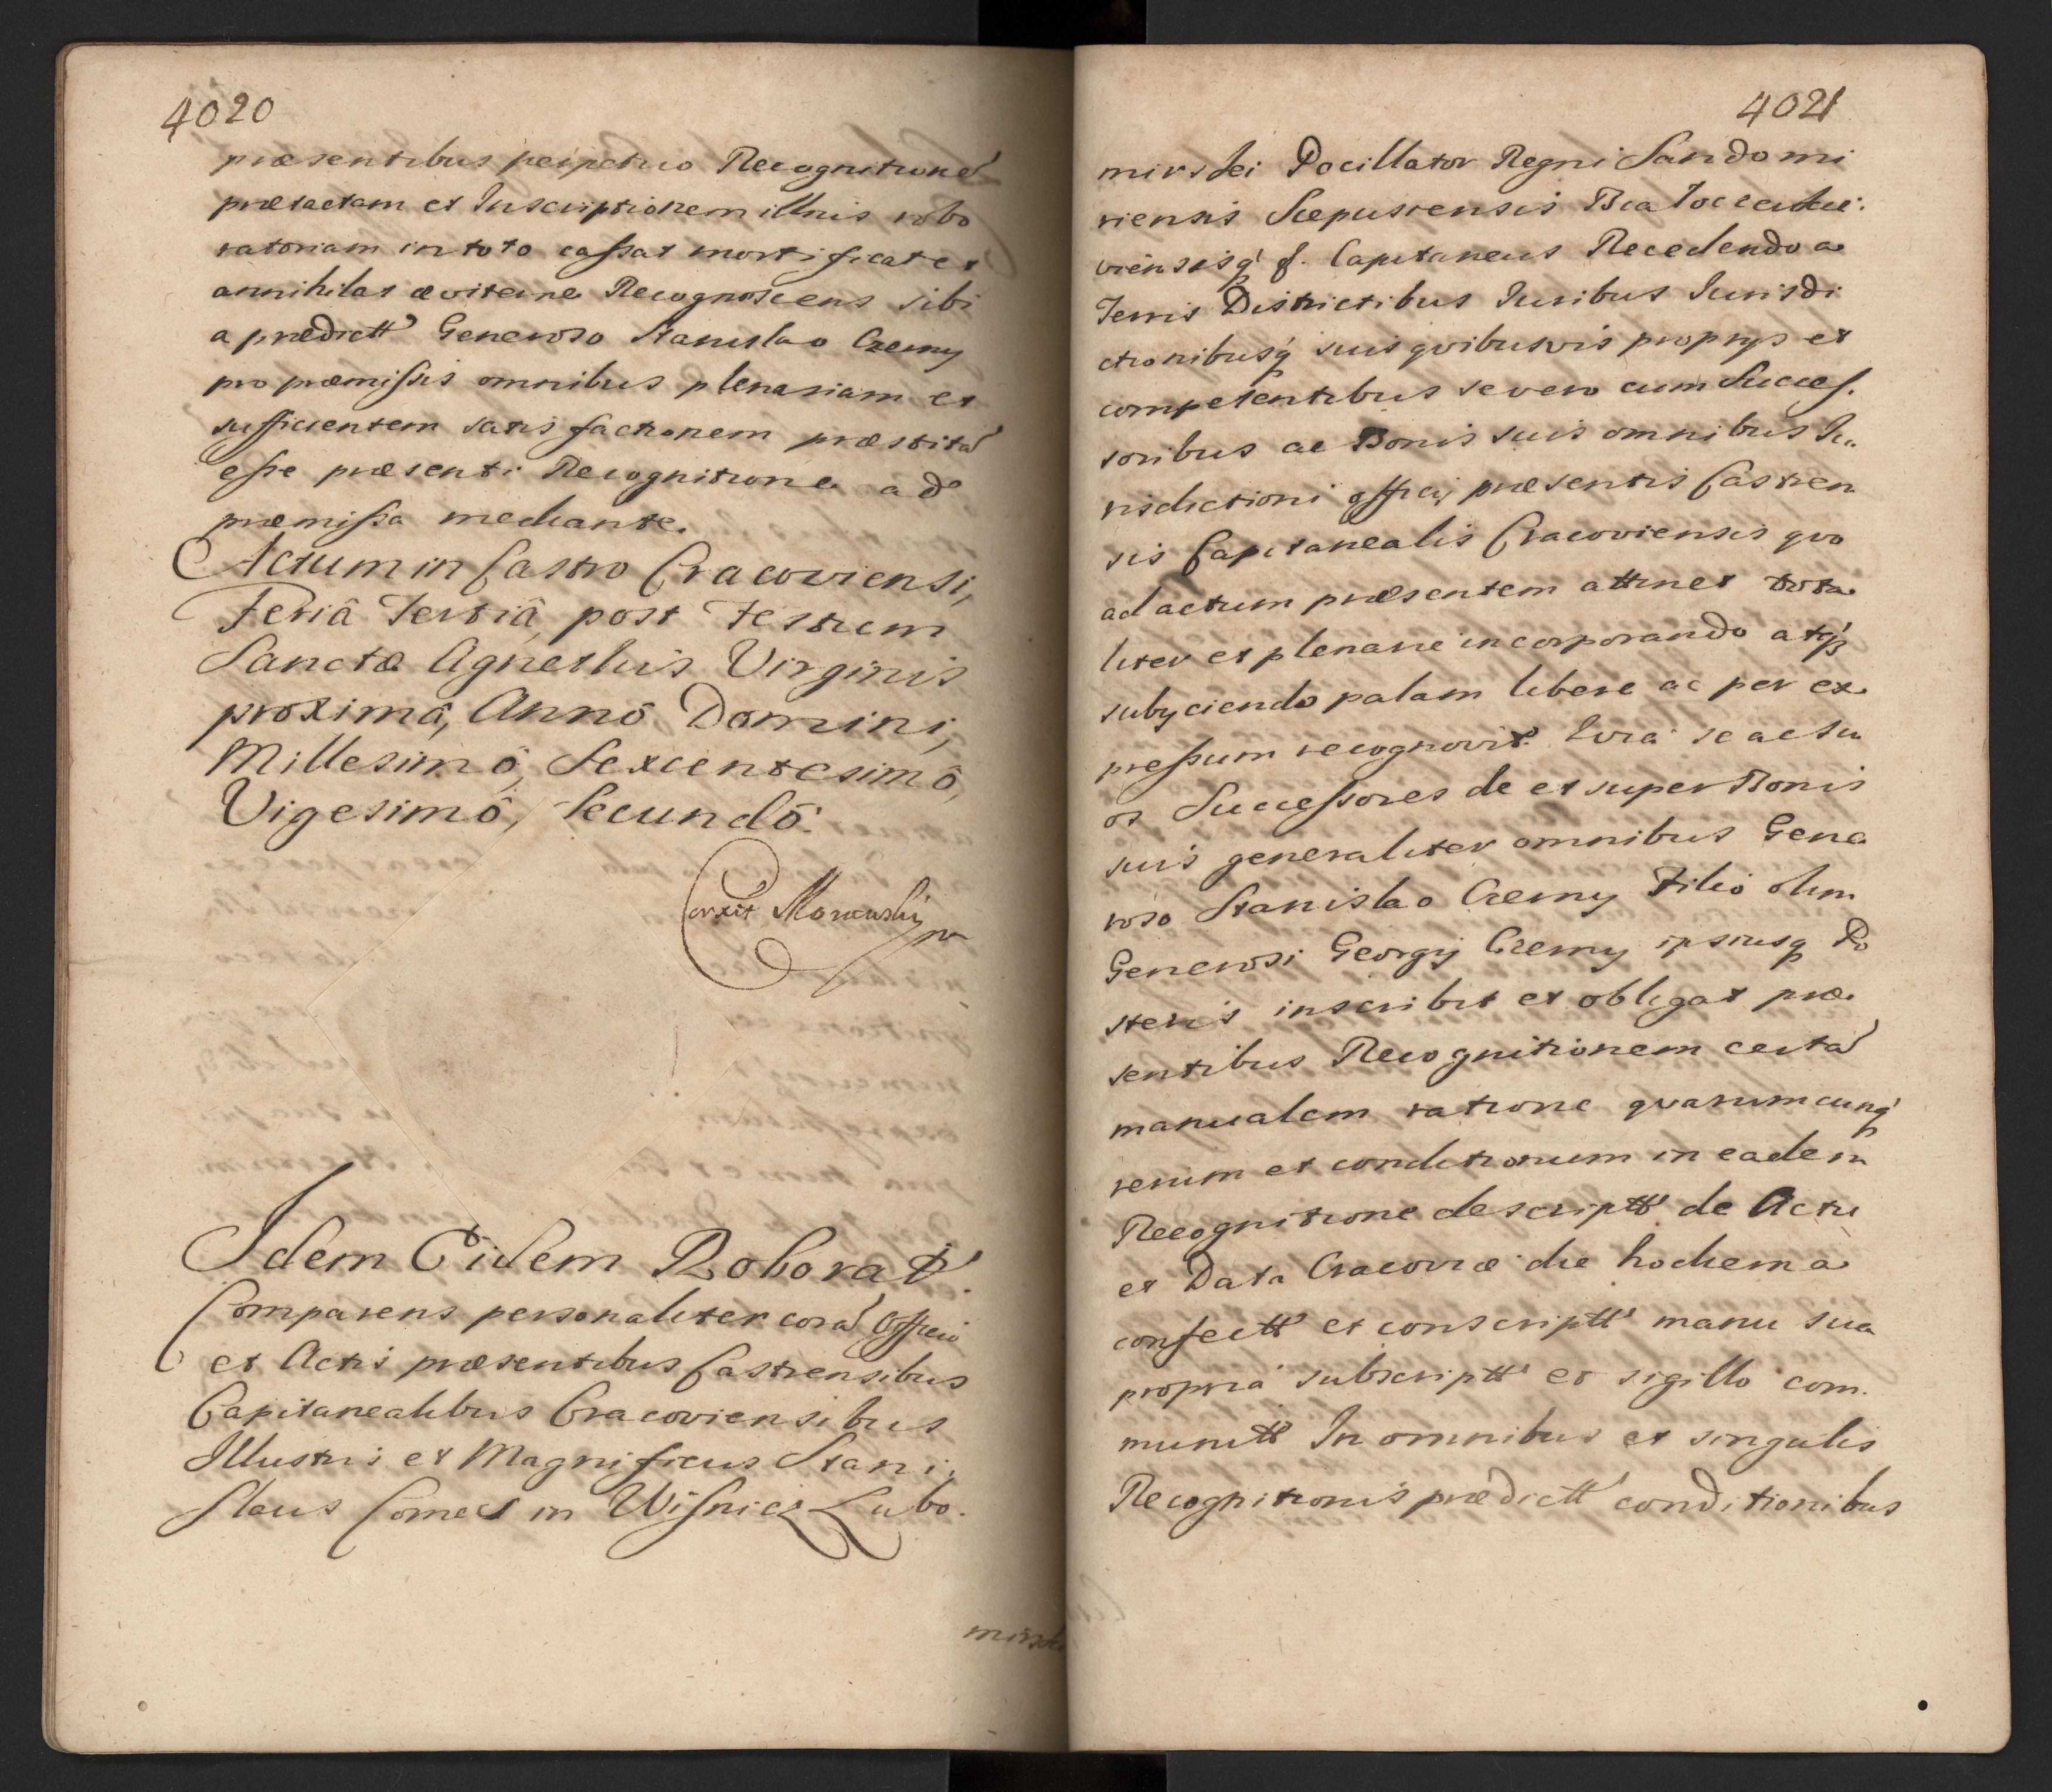 4020
præsentibus perpetuo Recognitione
prætactam et Inscriptionem illius robo
ratoriam in toto cassat mortificat et
annihilat æviterne Recognoscens sibi
a prædictt Generoso Stanislao Czerny
pro præmissis omnibus plenariam et
sufficientem satis factionem præstita
esse præsenti Recognitione ad
præmissa mediante.
Actum in Castro Cracoviensi,
Feriâ Tertiâ, post Festum
Sanctæ Agnethis Virginis
proximâ, Annô Domini,
Millesimô, Sexcentesimô,
Vigesimô, Secundô.
Corrxit
Idem Eidem Roborat.
Comparens personaliter cora Officio
et Actis præsentibus Castrensibus
Capitanealibus Cracoviensibus
Illustris et Magnificus Stani.
slaus Comes in Wisnicz Lubo.
mirski
4021
mirski Pocillator Regni Sandomi
riensis Scepusiensis
viensisq. Capitaneus Recedendo a
Terris Districtibus Juribus Jurisdi
ctionibusq suis qvibusvis proprys et
competentibus se vero cum Succes.
soribus ac Bonis suis omnibus Ju.
risdictioni officy præsentis Castren
sis Capitanealis Cracoviensis qvo
ad actum præsentem attinet tota
liter et plenarie incorporando atq3
subyciendo palam libere ac per ex.
pressum recognovit. Qvia se ac su
os Successores de et super Bonis
suis generaliter omnibus Gene
roso Stanislao Czerny Filio olim
Generosi Georgy Czerny ipsiusq Po
steris inscribit et obligat præ.
sentibus Recognitionem certa
manualem ratione qvarumcunq
rerum et conditionum in eadem
Recognitione descriptt de Actu
et Data Cracoviæ die hodierna
confectt et conscriptt manu sua
propria subscriptt et sigillo com.
munitt In omnibus et singulis
Recognitionis prædictt conditionibus